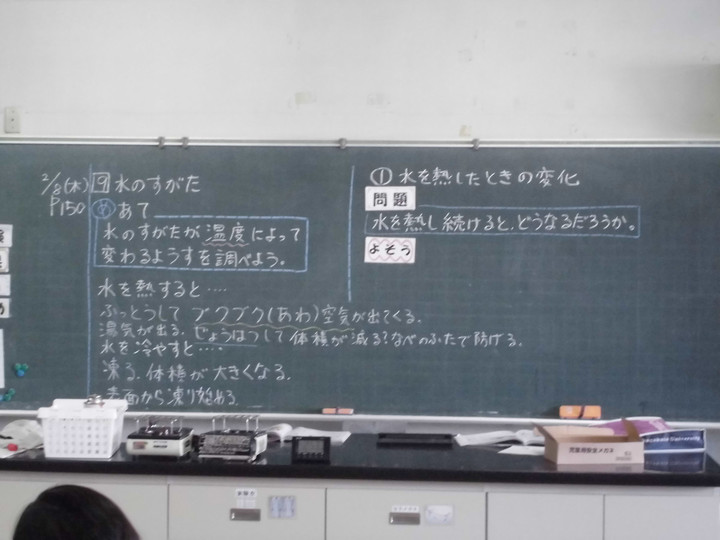 2/8(木) 9 水のすがた
P150 め あて
水のすがたが温度によって
変わるようすを調べよう。
水を熱すると‥‥
ふっとうして ブクブク(あわ)空気が出てくる.
湯気が出る. じょうはつして体積が減る?なべのふたで防げる.
水を冷やすと‥‥
凍る.体積が大きくなる.
表面から凍り始める.
① 水を熱したときの変化
問題
水を熱し続けると、どうなるだろうか。
よそう
児童用保安メガネ